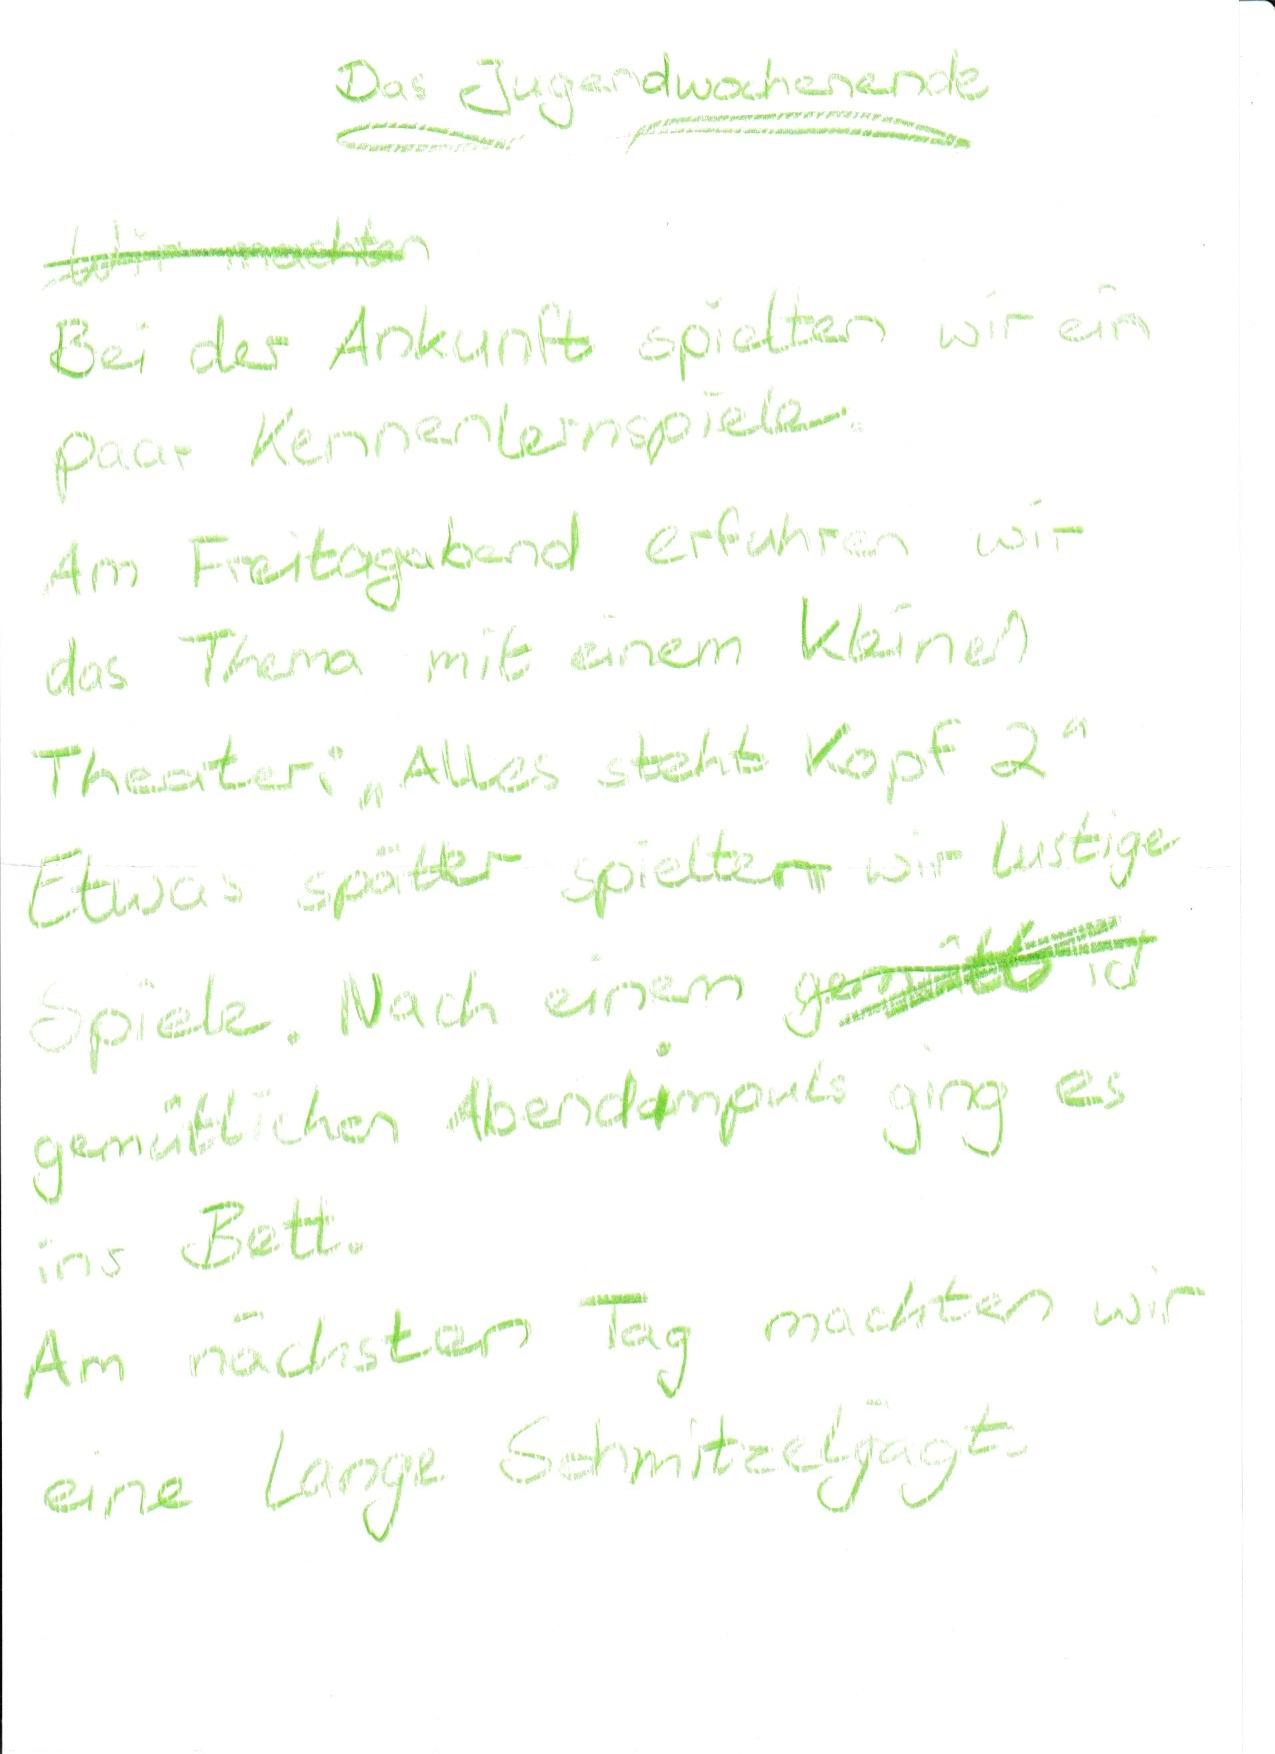 Das Jugendwochenende
Wir machten
Bei der Ankunft spielten wir ein
paar Kennenlernspiele.
Am Freitagabend erfuhren wir
das Thema mit einem kleinen
Theater: „Alles steht Kopf 2"
Etwas später spielten wir lustige
Spiele. Nach einem
gemütlichen Abendimpuls ging es
ins Bett.
Am nächsten Tag machten wir
eine Lange Schnitzeljagt.